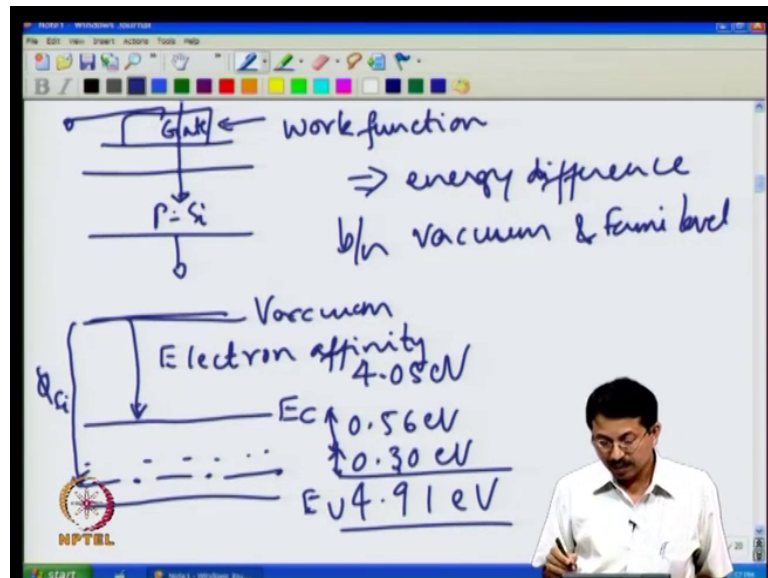 Note1 - Windows Journal
File Edit View Insert Actions Tools Help
B I
Gate ← Work function
⇒ energy difference
b/n vacuum & Fermi level
P-Si
Vaccuum
Electron affinity
4.05 eV
ϕSi
EC 0.56 eV
0.30 eV
EV 4.91 eV
NPTEL
start
Note1 - Windows Jou...